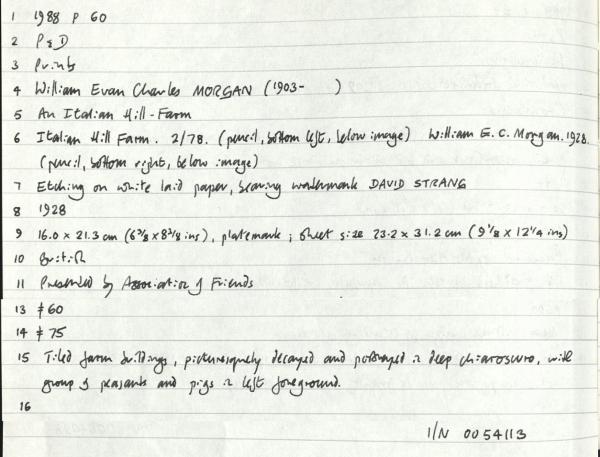 1 1988 P 60
2 P & D
3 Prints
4 William Evan Charles MORGAN (1903- )
5 An Italian Hill-Farm
6 Italian Hill Farm. 2/78. (pencil, bottom left, below image) William E. C. Morgan. 1928.
(pencil, bottom right, below image)
7 Etching on white laid paper, bearing watermark DAVID STRANG
8 1928
9 16.0 x 21.3 cm (6 3/8 x 8 3/8 ins), platemark ; sheet size 23.2 x 31.2 cm (9 1/8 x 12 1/4 ins)
10 British
11 Presented by Association of Friends
13 ‡ 60
14 ‡ 75
15 Tiled farm buildings, picturesquely decayed and portrayed in deep chiaroscuro, with
group of peasants and pigs in left foreground.
16
I/N 0054113